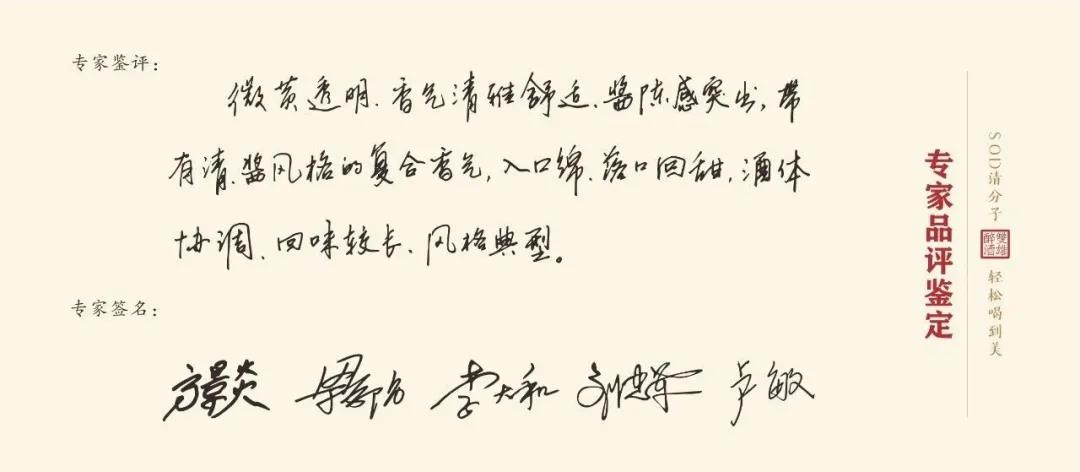 专家鉴评：
微黄透明、香气清雅舒适、酱陈感突出，带
有清、酱风格的复合香气，入口绵、落口回甜，酒体
协调、回味较长、风格典型。
专家签名：
李大和 卢敏
专家品评鉴定
SOD清分子
轻松喝到美